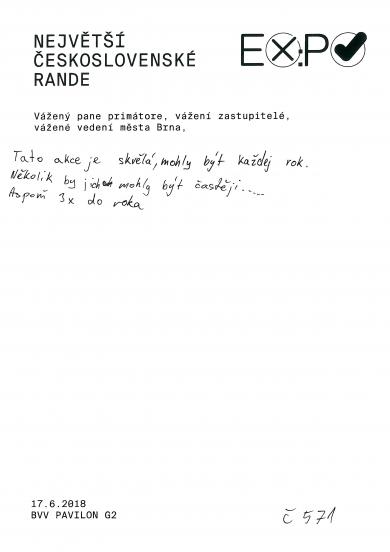 NEJVĚTŠÍ
ČESKOSLOVENSKÉ
RANDE
EXPO
Vážený pane primátore, vážení zastupitelé,
vážené vedení města Brna,
Tato akce je skvělá, mohly být každej rok.
Několik by jich mohly být častěji.....
Aspoň 3x do roka
17.6.2018
BVV PAVILON G2
č 571